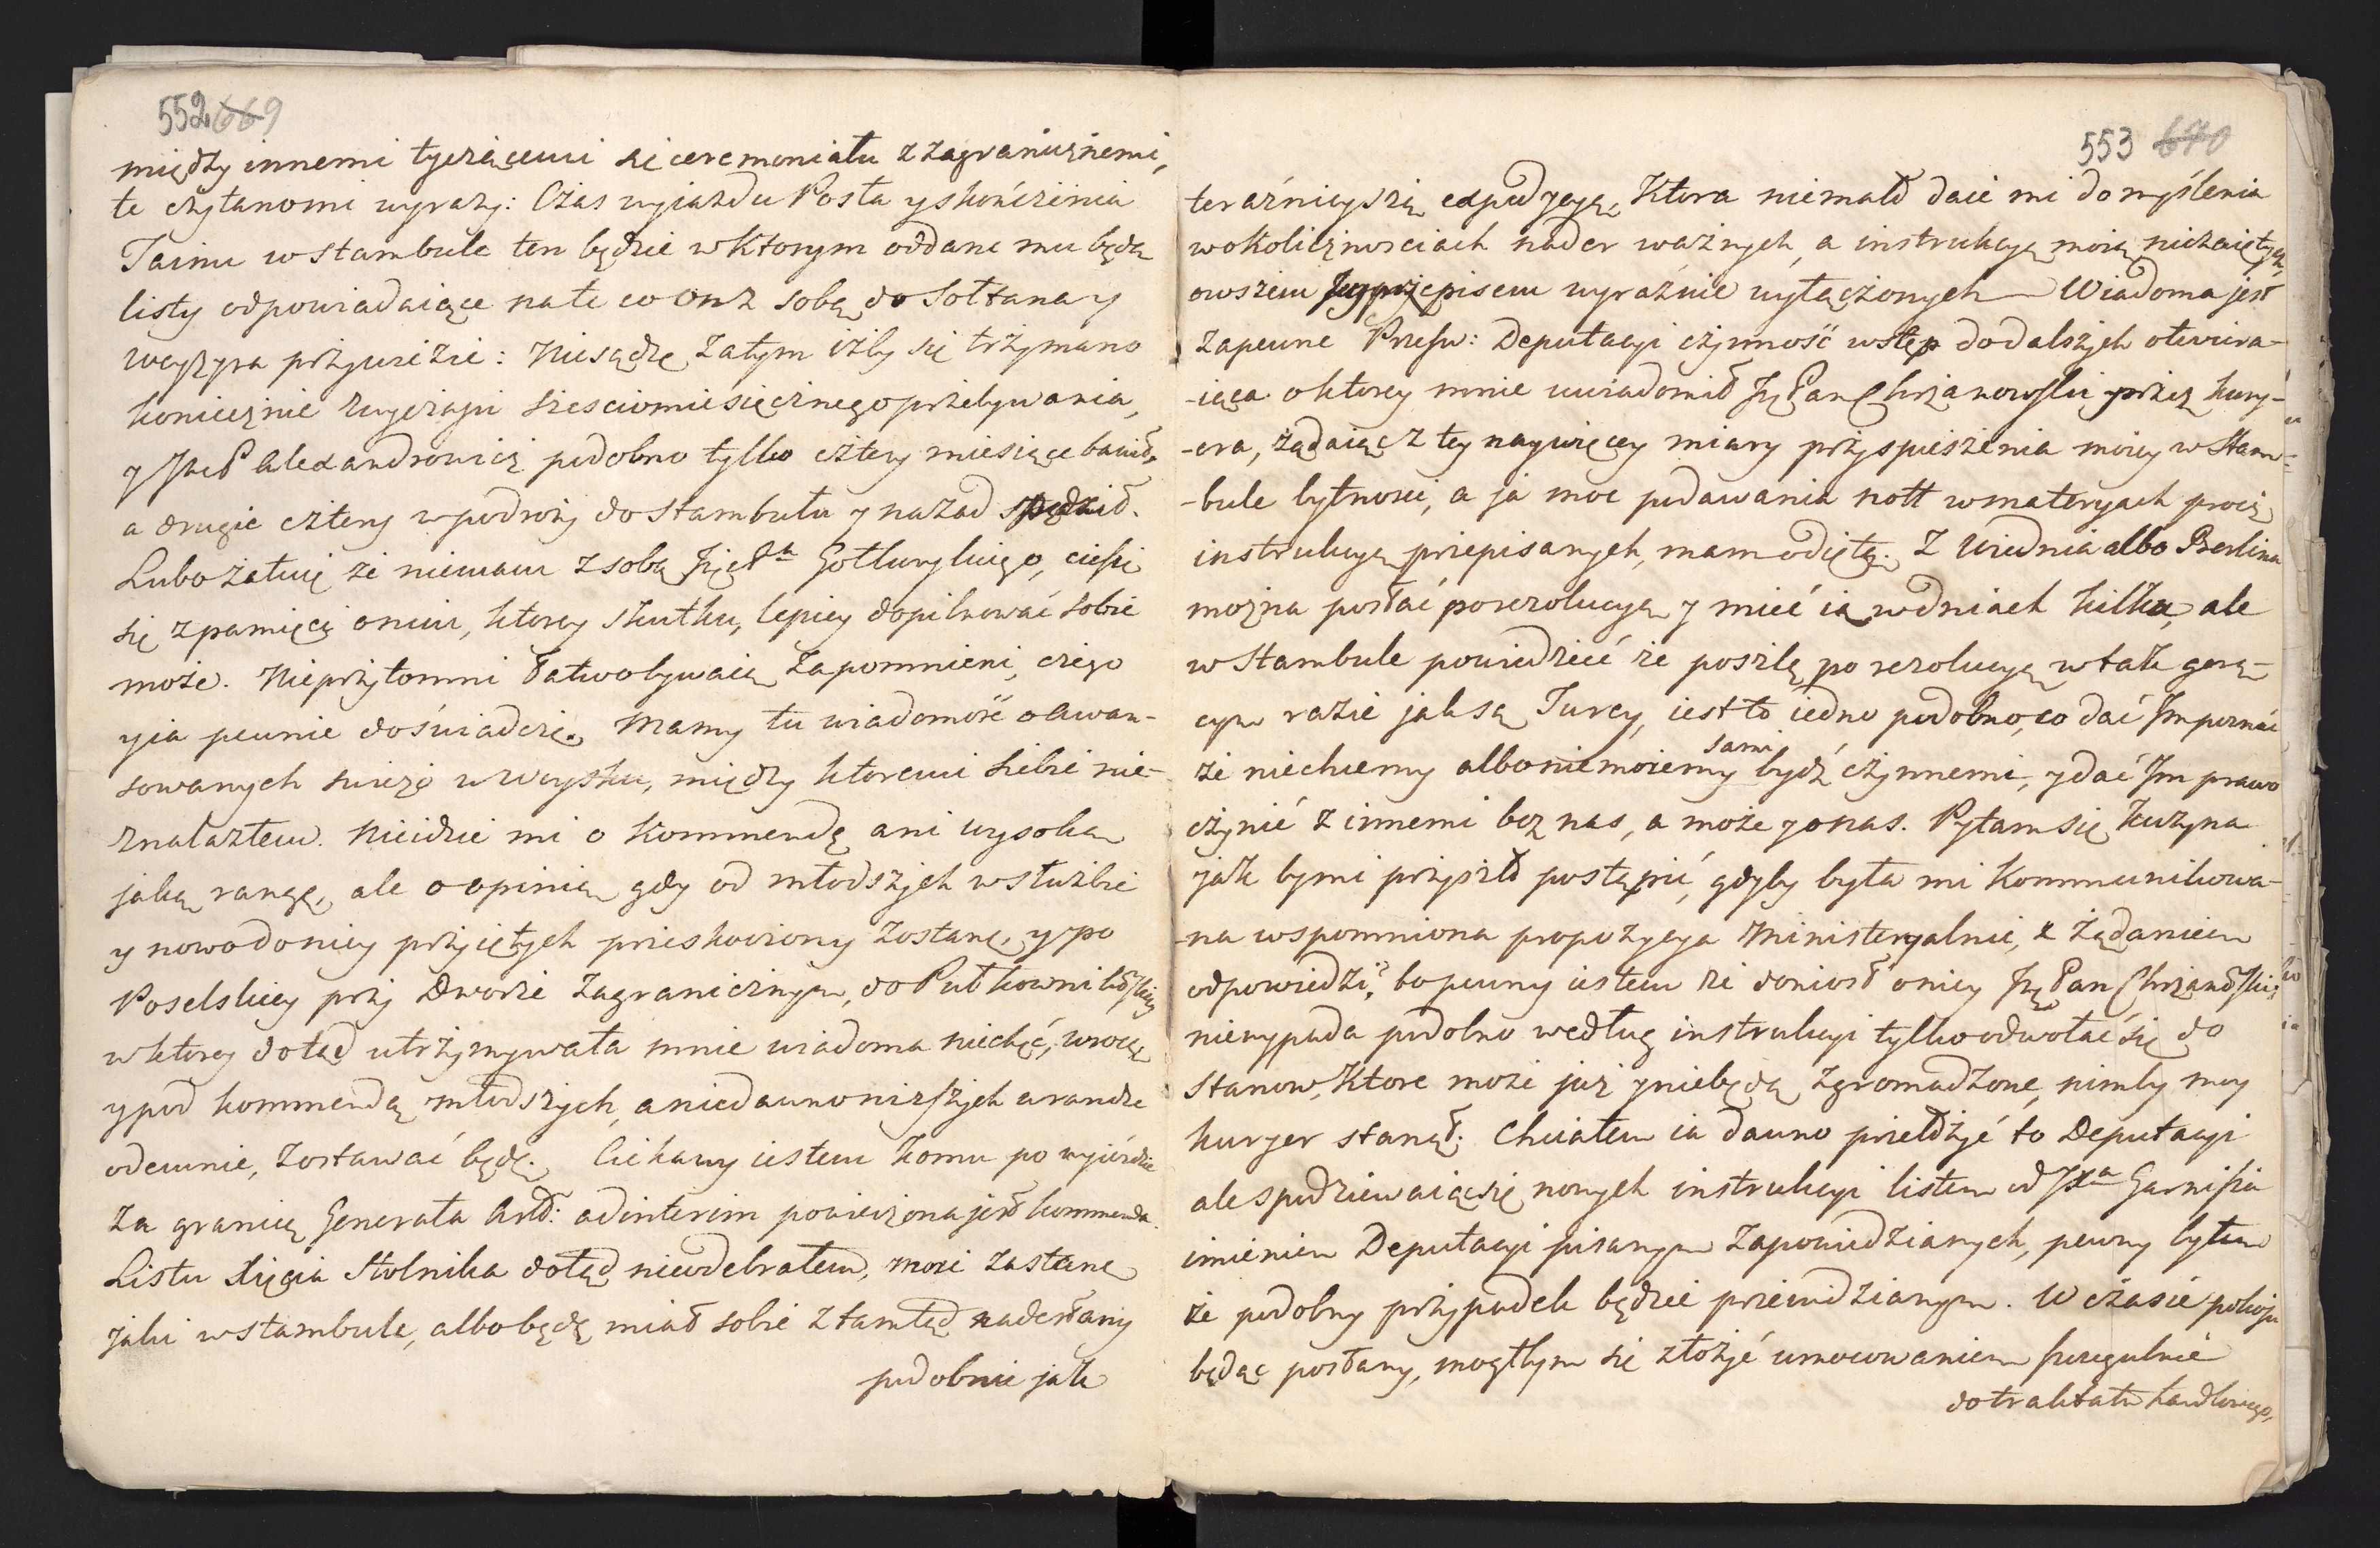 552 669
między innemi tyczącemi się ceremoniału z zagranicznemi,
te czytanomi wyrazy: Czas wyiazdu Posła y skończenia
Taimu w Stambule ten będzie w ktorym oddane mu będą
listy odpowiadaiące na te co on z sobą do Sołtana y
Wezyra przywiezie: Niesądzę zatym iżby się trzymano
koniecznie zwyczaju sześciomiesięcznego przebywania,
y JmcP Alexandrowicz podobno tylko cztery miesiące bawił,
a drugie cztery w podroży do Stambułu y nazad spędził.
Lubo żałuię że niemam z sobą
się z pamięci o nim, ktorey skutku, lepiey dopilnować sobie
może. Nieprzytomni łatwo bywaią zapomnieni, czego
y ia pewnie doświadczę. Mamy tu wiadomość o awan-
sowanych swieżo w Woysku, między ktoremi siebie nie-
znalazłem. Nieidzie mi o kommendę ani wysoką
jaką rangę, ale o opinią gdy od młodszych w służbie
y nowo do niey przyiętych przeskoczony zostanę, y po
Poselskiey przy Dworze Zagranicznym, do Pułkownikowskiey
w ktorey dotąd utrzymywała mnie wiadoma niechęć, wrocę
y pod kommendą młodszych, a niedawno niższych w randze
odemnie, zostawać będę. Ciekawy iestem komu po wyieździe
za granicę Generała Artł: ad interim powierzona jest kommenda.
Listu Xięcia Stolnika dotąd nieodebrałem, może zastanę
jaki w Stambule, albo będę miał sobie z tamtąd nadesłany
podobnie jak
553 670
teraźnieyszą expedycyą, ktora niemało daie mi do myślenia
w okolicznościach nader ważnych, a instrukcyą moią nieobiętych,
owszem Jey przepisem wyraźnie wyłączonych Wiadoma jest
zapewne Przesw: Deputacyi czynność wstęp do dalszych otwiera-
-iąca o ktorey mnie uwiadomił JPan Chrzanowski przez kury-
-era, żądaiąc z tey naywięcey miary przyspieszenia moiey w Stam-
-bule bytności, a ja moc podawania nott w materyach procz
instrukcyą przepisanych, mam odiętą. Z Wiednia albo Berlina
można posłać po rezolucyą y mieć ią w dniach kilku, ale
w Stambule powiedzieć że poszlę po rezolucyą w tak gorą-
cym razie jak są Turcy, iest to iedno podobno, co dać Im poznać
że niechcemy albo niemożemy sami bydź czynnemi, y dać Im prawo
czynić z innemi bez nas, a może y o nas. Pytam się Kuzyna
jak by mi przyszło postąpić, gdyby była mi kommunikowa-
-na wspomniona propozycya Ministeryalnie, z żądaniem
odpowiedzi, bo pewny iestem że doniosł o niey JPan Chrzanowski,
niewypada podobno według instrukcyi tylko odwołać się do
Stanow, ktore może już y niebędą zgromadzone, nimby moy
kuryer stanął. Chciałem ia dawno przełożyć to Deputacyi
ale spodziewaiąc się nowych instrukcyi listem od JXa Garnisza
imieniem Deputacyi pisanym zapowiedzianych, pewny byłem
że podobny przypadek będzie przewidzianym. W czasie pokoju
będąc posłany, mogłbym się złożyć umocowaniem szczegulnie
do traktatu handlowego,